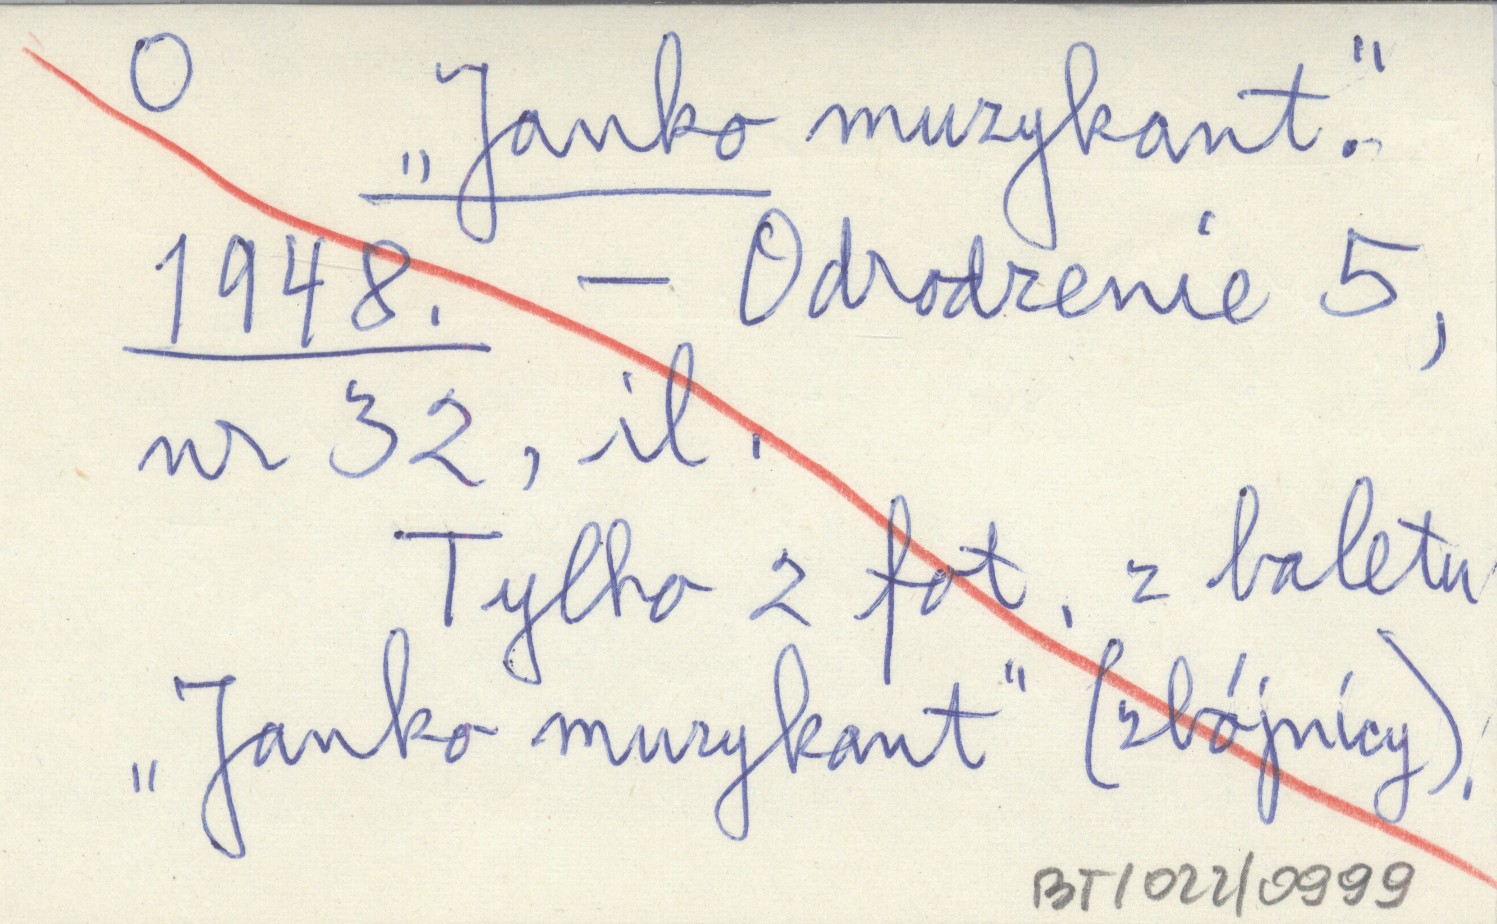 O „Janko muzykant".
1948. — Odrodzenie 5,
nr 32, il.
Tylko 2 fot. z baletu
„Janko muzykant" (zbójnicy).
BT/022/0999